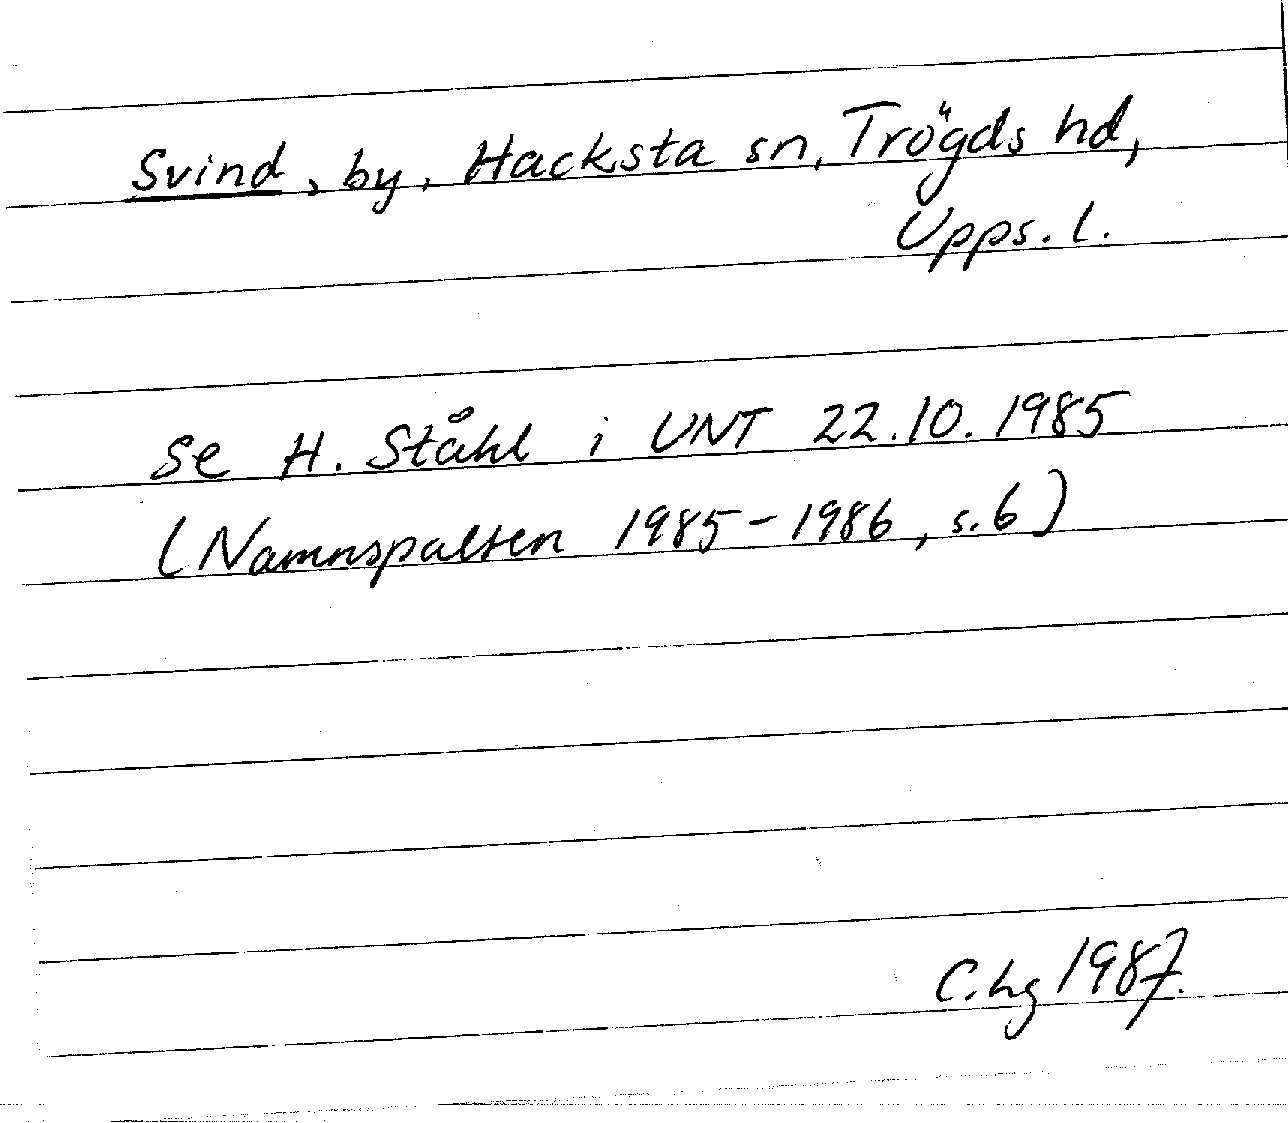 Svind, by, Hacksta sn, Trögds hd,
Upps. l.
se H. Ståhl i UNT 22.10.1985
(Namnspalten 1985-1986, s. 6)
C.hg 1987.